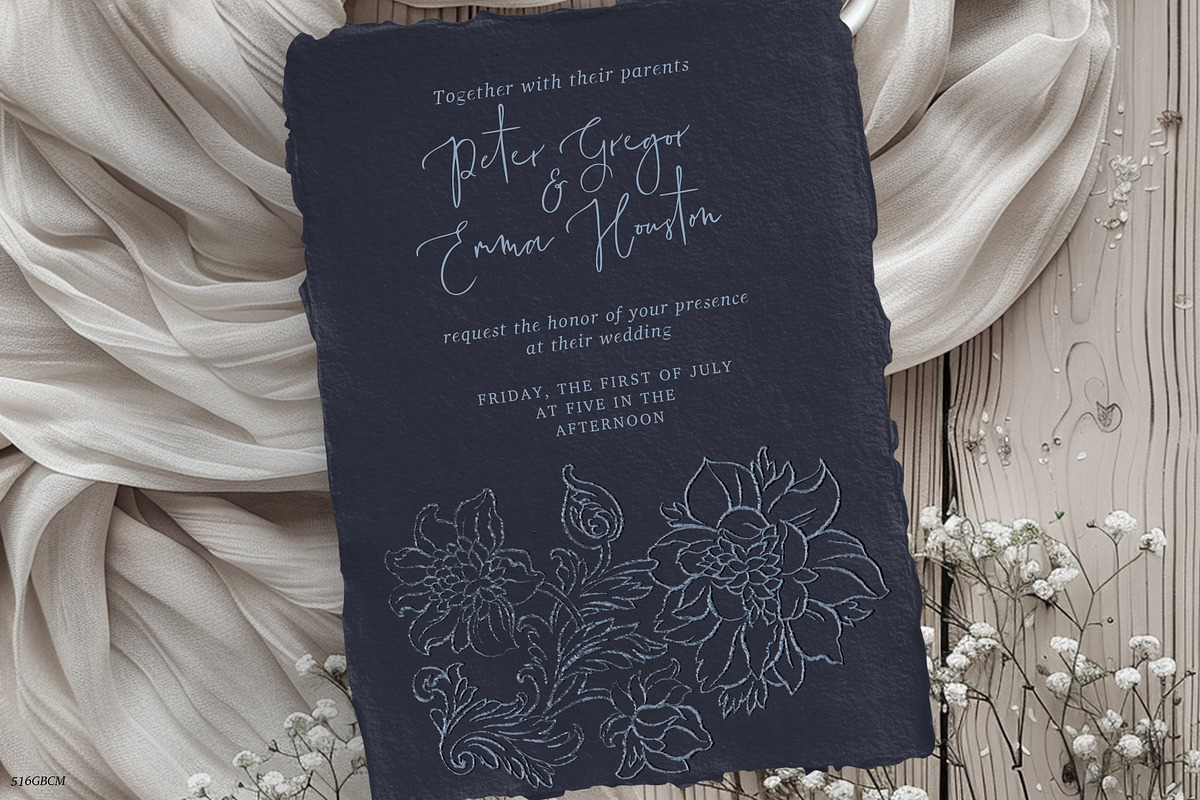 Together with their parents
Peter Gregor
&
Emma Houston
request the honor of your presence
at their wedding
FRIDAY, THE FIRST OF JULY
AT FIVE IN THE
AFTERNOON
516GBCM